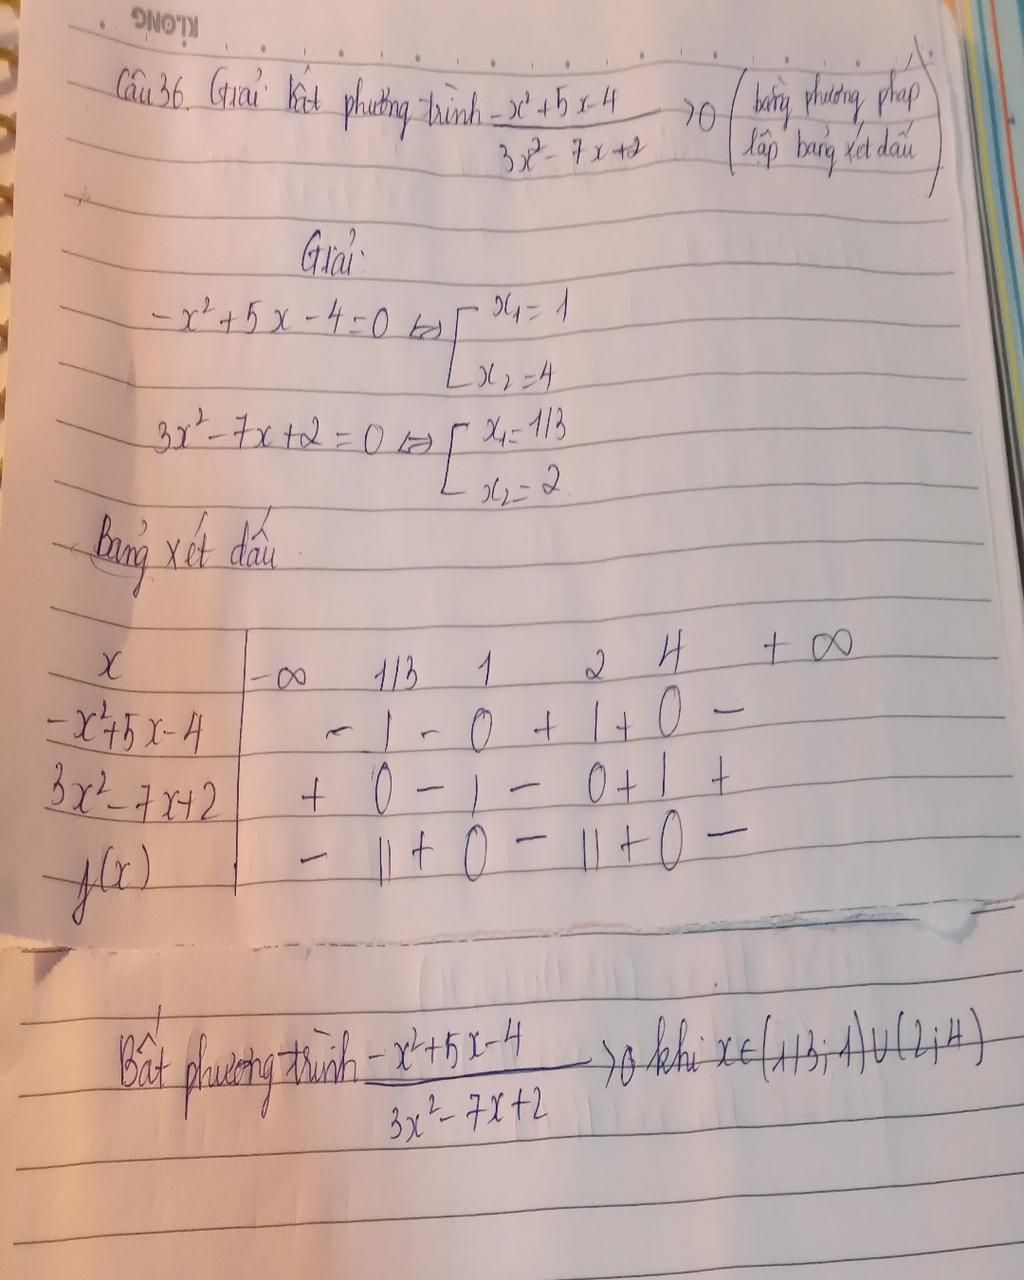 KLONG
Câu 36. Giải bất phương trình (-x²+5x-4)/(3x²-7x+2) >0 (bằng phương pháp lập bảng xét dấu)
Giải:
-x²+5x-4=0 ⇔ [ x₁=1
x₂=4
3x²-7x+2=0 ⇔ [ x₁=1/3
x₂=2
Bảng xét dấu
x | -∞ 1/3 1 2 4 +∞
-x²+5x-4 | - | - 0 + | + 0 -
3x²-7x+2 | + 0 - | - 0 + | +
f(x) | - || + 0 - || + 0 -
Bất phương trình (-x²+5x-4)/(3x²-7x+2) >0 khi x∈(1/3;1)∪(2;4)